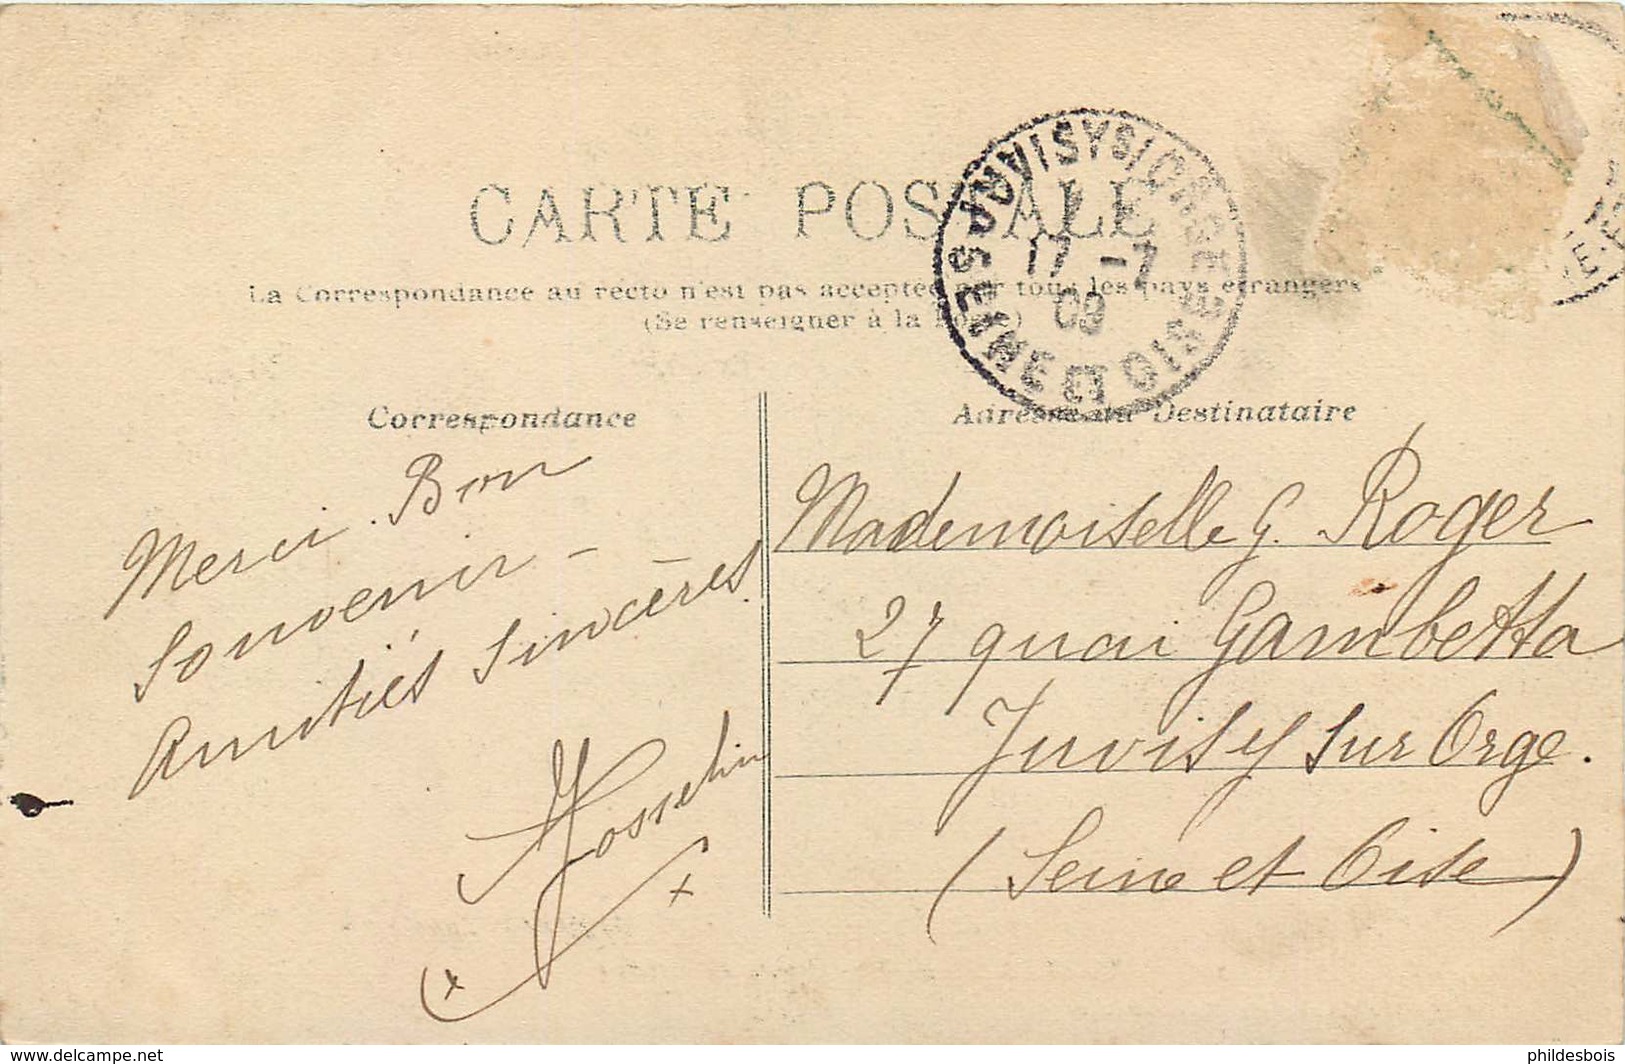 CARTE POSTALE
La Correspondance au recto n'est pas acceptée par tous les pays étrangers
(Se renseigner à la Poste)
17 -7
09
SEINE ET OISE
Correspondance
Adresse du Destinataire
Merci. Bon
Souvenir -
Amitiés Sincères.
Josselin
Mademoiselle G. Roger
27 quai Gambetta
Juvisy sur Orge.
(Seine et Oise)
www.delcampe.net
phildesbois